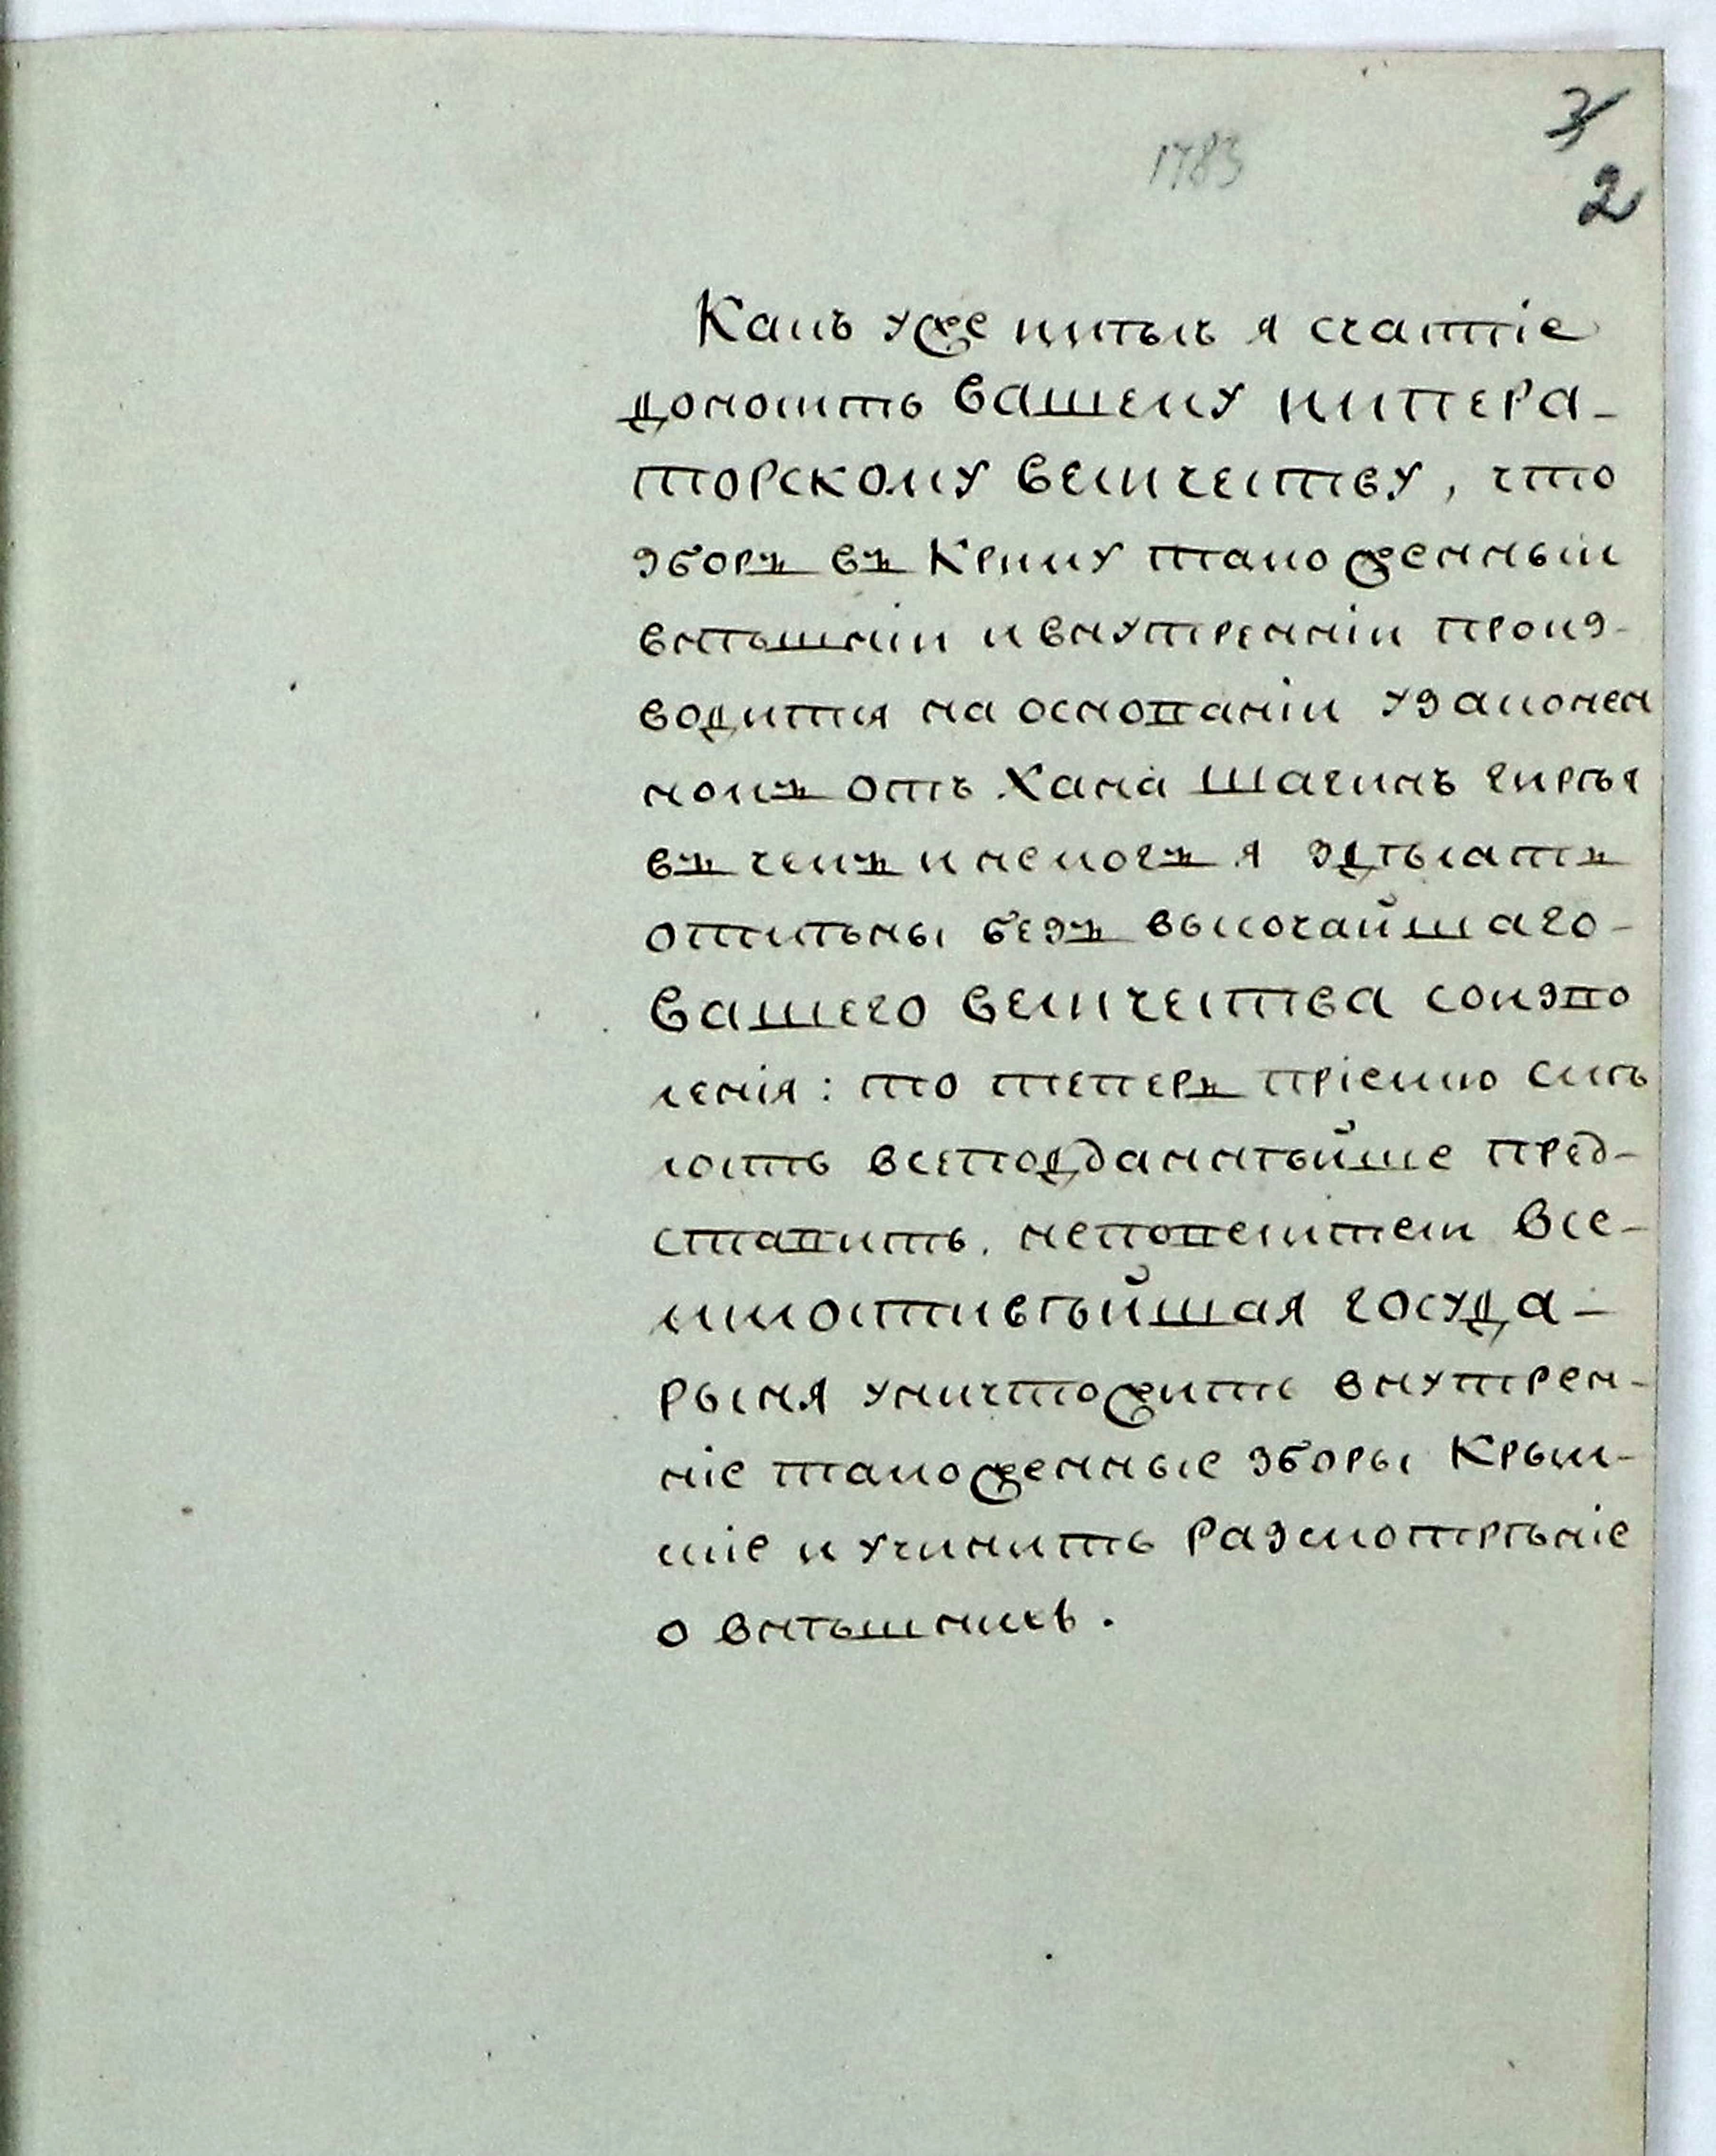 3
1783
2
Какъ уже имѣлъ я счастіе
доложить Вашему Импера-
торскому Величеству, что
зборъ въ Крыму таможенный
внѣшній и внутренній произ-
водится на основаніи узаконен
номъ отъ Хана Шагинъ Гирѣя
въ чемъ и не могъ я здѣлать
отмѣны безъ высочайшаго
Вашего Величества соизво
ленія: то теперь пріемлю смѣ
лость всеподданнѣйше пред-
ставить. не повелите ли Все-
милостивѣйшая Госуда-
рыня уничтожить внутрен-
ніе таможенные зборы Крым-
скіе и учинить разсмотрѣніе
о внѣшнихъ.